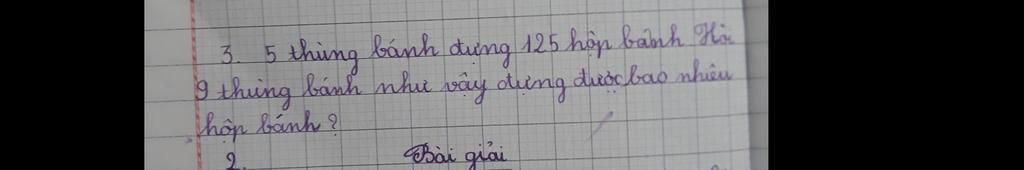 3. 5 thùng bánh đựng 125 hộp bánh Hỏi
9 thùng bánh như vậy đựng được bao nhiêu
hộp bánh?
2. Bài giải